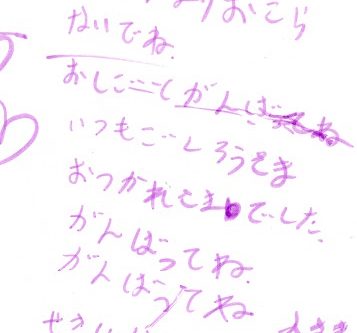 おこら
ないでね.
おしごとがんばってね
いつもごくろうさま
おつかれさまでした.
がんばってね.
がんばってね